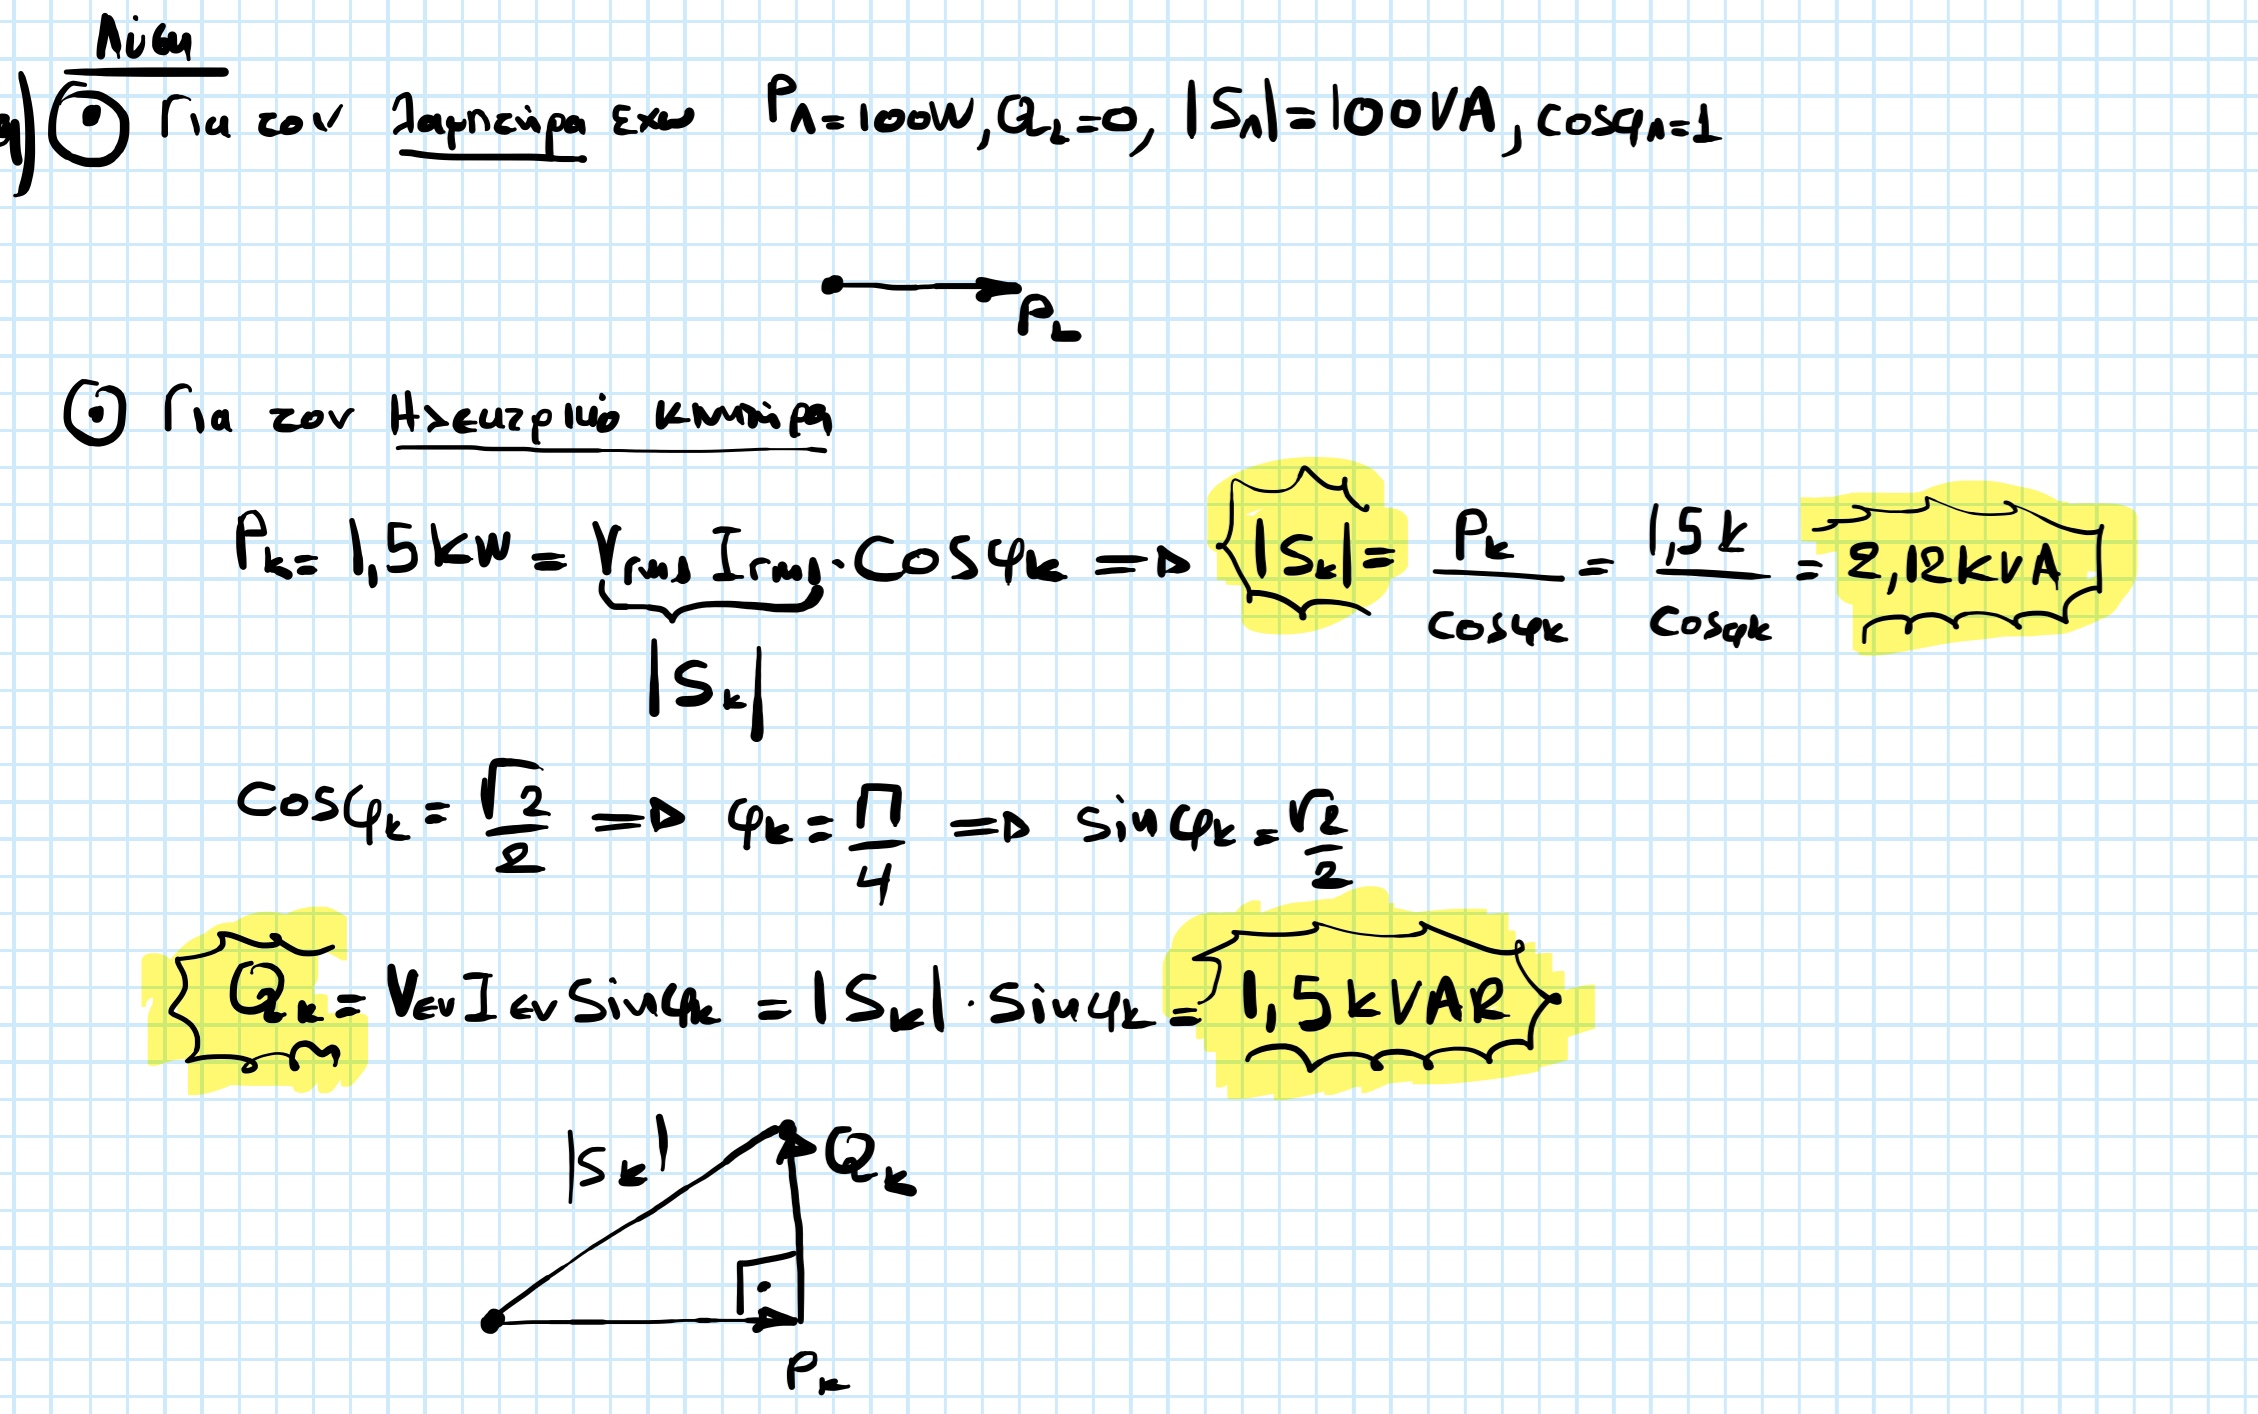 Λύση
α) Για τον λαμπτήρα έχω P_Λ=100W, Q_L=0, |S_Λ|=100VA, cosφ_Λ=1
P_L
Για τον Ηλεκτρικό κινητήρα
P_k = 1,5kW = V_rms I_rms · cosφ_k ⇒ |S_k| = P_k/cosφ_k = 1,5k/cosφ_k = 2,12kVA
|S_k|
cosφ_k = √2/2 ⇒ φ_k = Π/4 ⇒ sinφ_k = √2/2
Q_k = V_εν I_εν sinφ_k = |S_k| · sinφ_k = 1,5kVAR
|S_k| Q_k
P_k